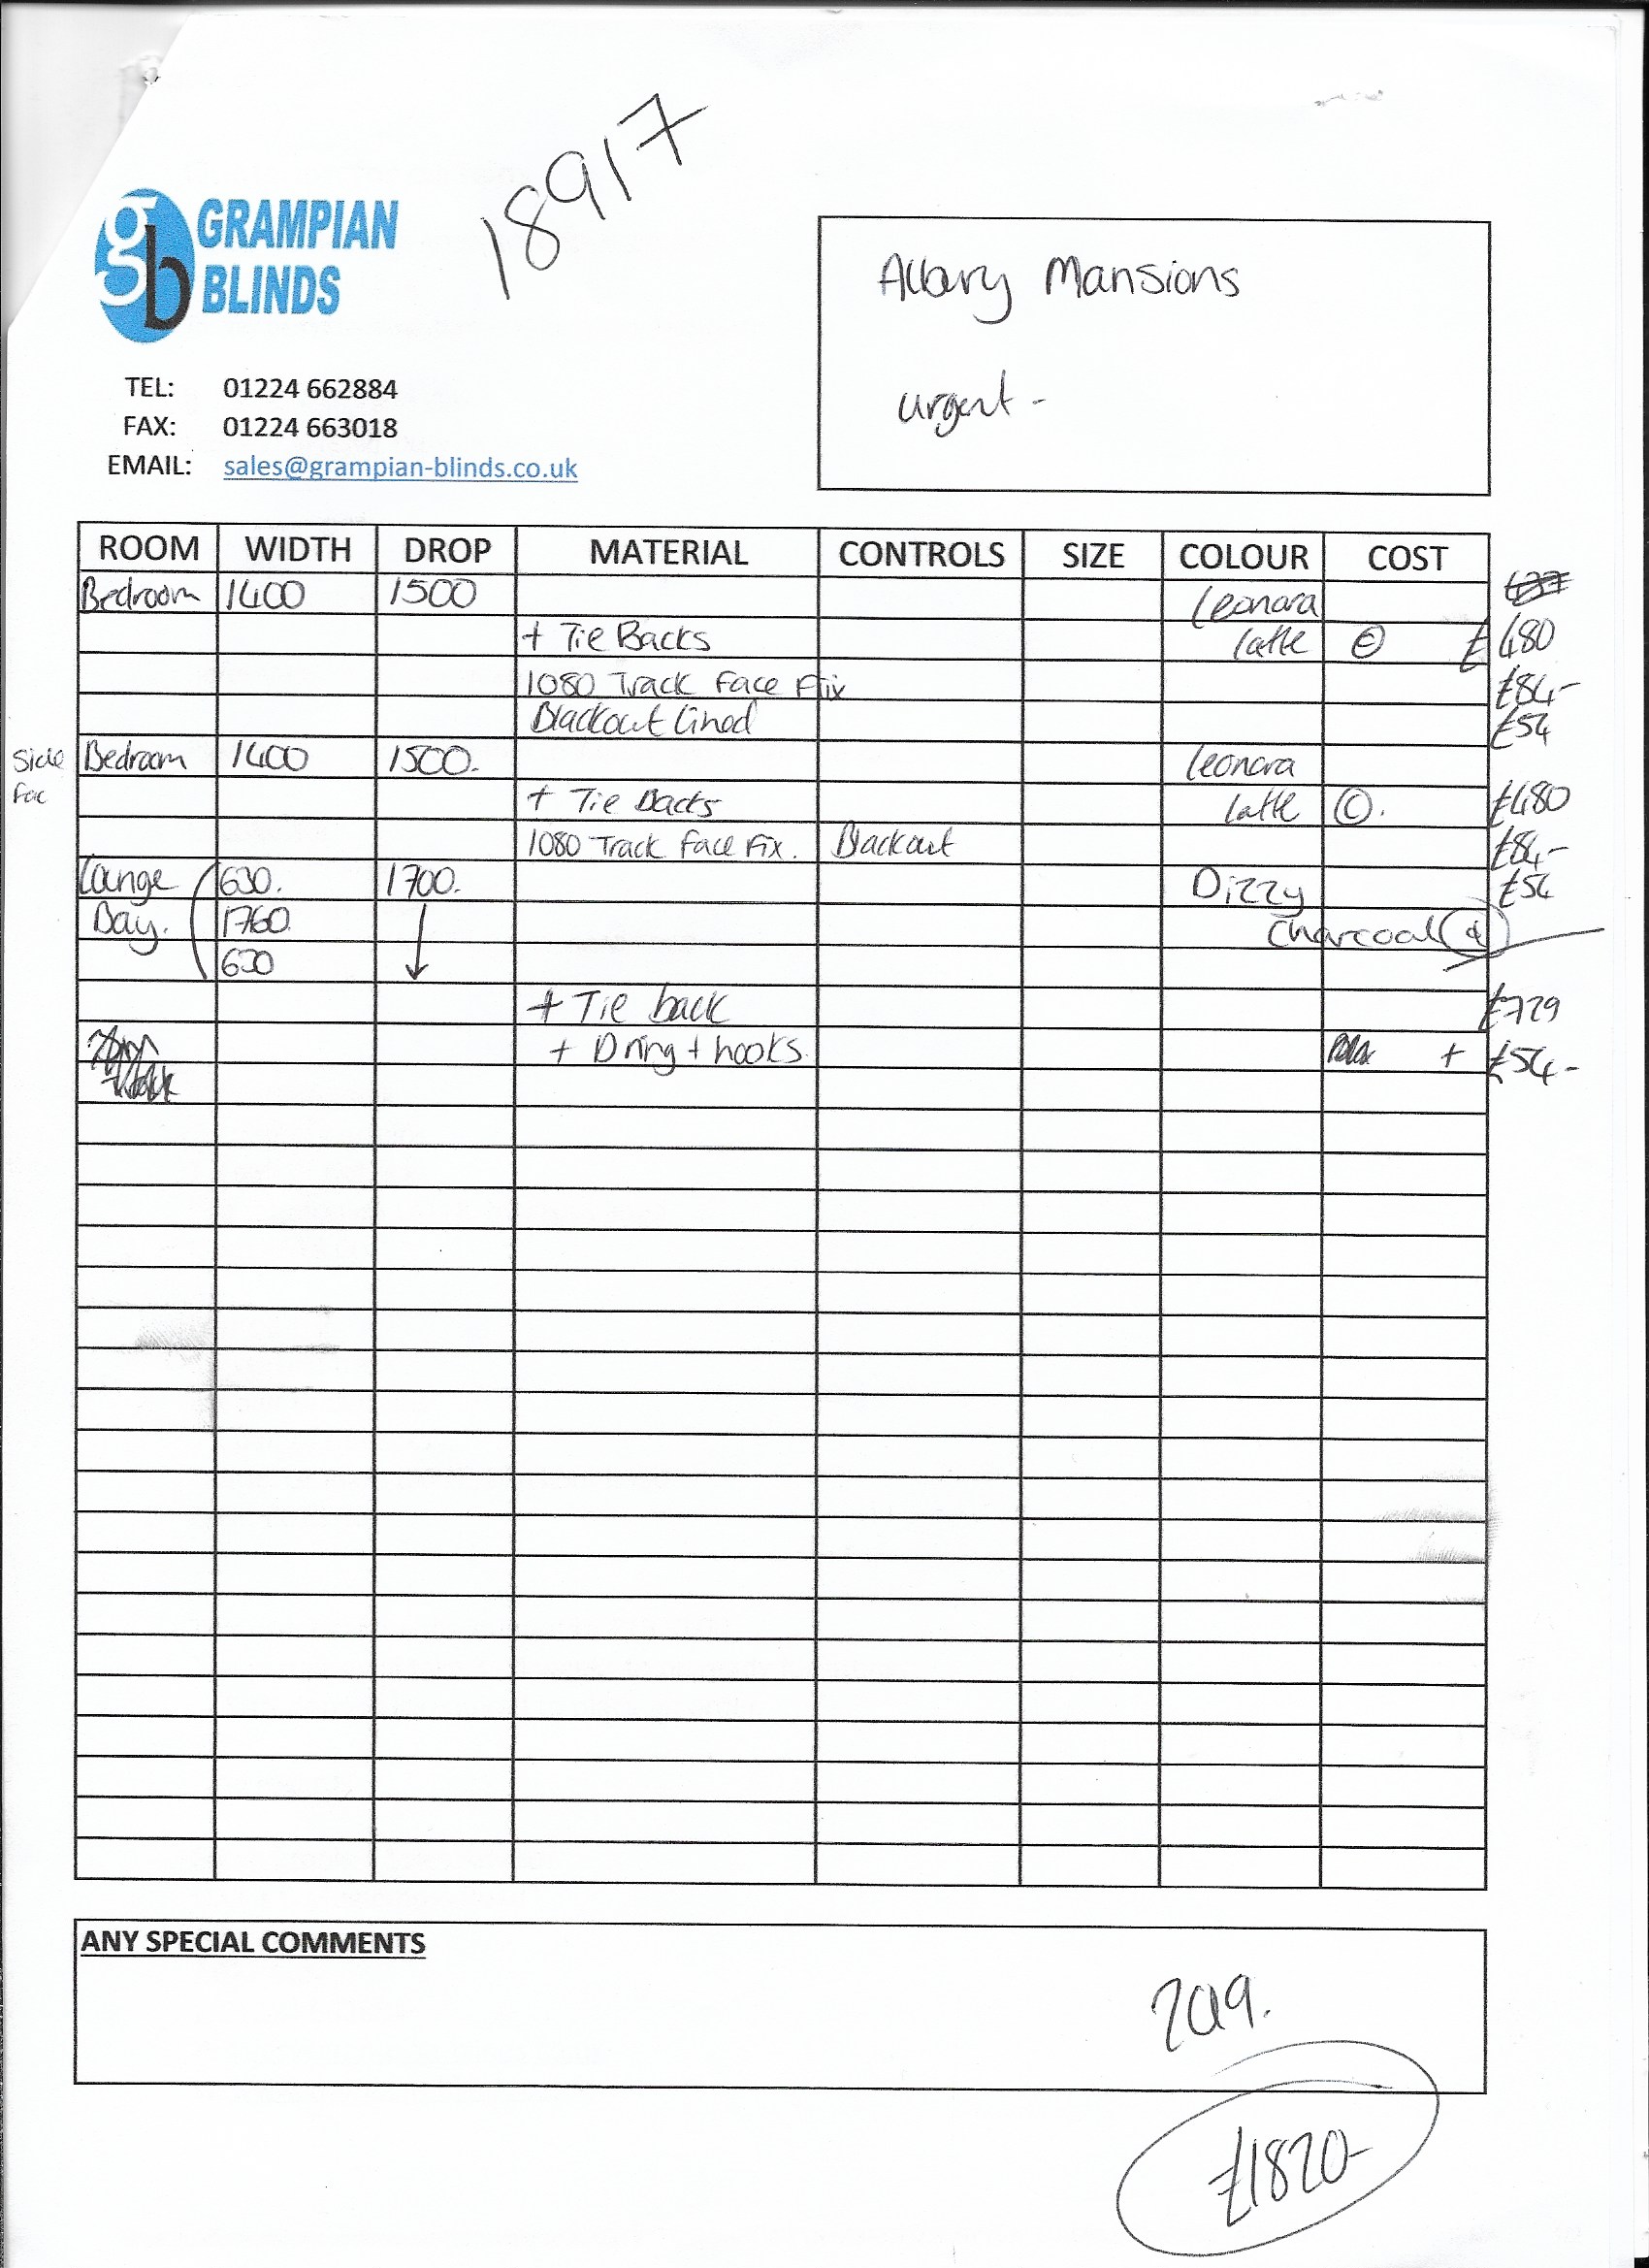 18917
GRAMPIAN
BLINDS
TEL: 01224 662884
FAX: 01224 663018
EMAIL: sales@grampian-blinds.co.uk
Albury Mansions
urgent -
ROOM WIDTH DROP MATERIAL CONTROLS SIZE COLOUR COST
Bedroom 1400 1500 Leonora
+ Tie Backs latte © £480
1080 Track Face Fix £84-
Blackout Lined £54
Side Bedroom 1400 1500. Leonora
Fac + Tie Backs latte ©. £480
1080 Track Face Fix. Blackout £84-
Lounge 630. 1700. Dizzy £54
Bay. 1760 Charcoal
630
+ Tie back £729
+ D ring + hooks + £54-
ANY SPECIAL COMMENTS
2019.
£1820-